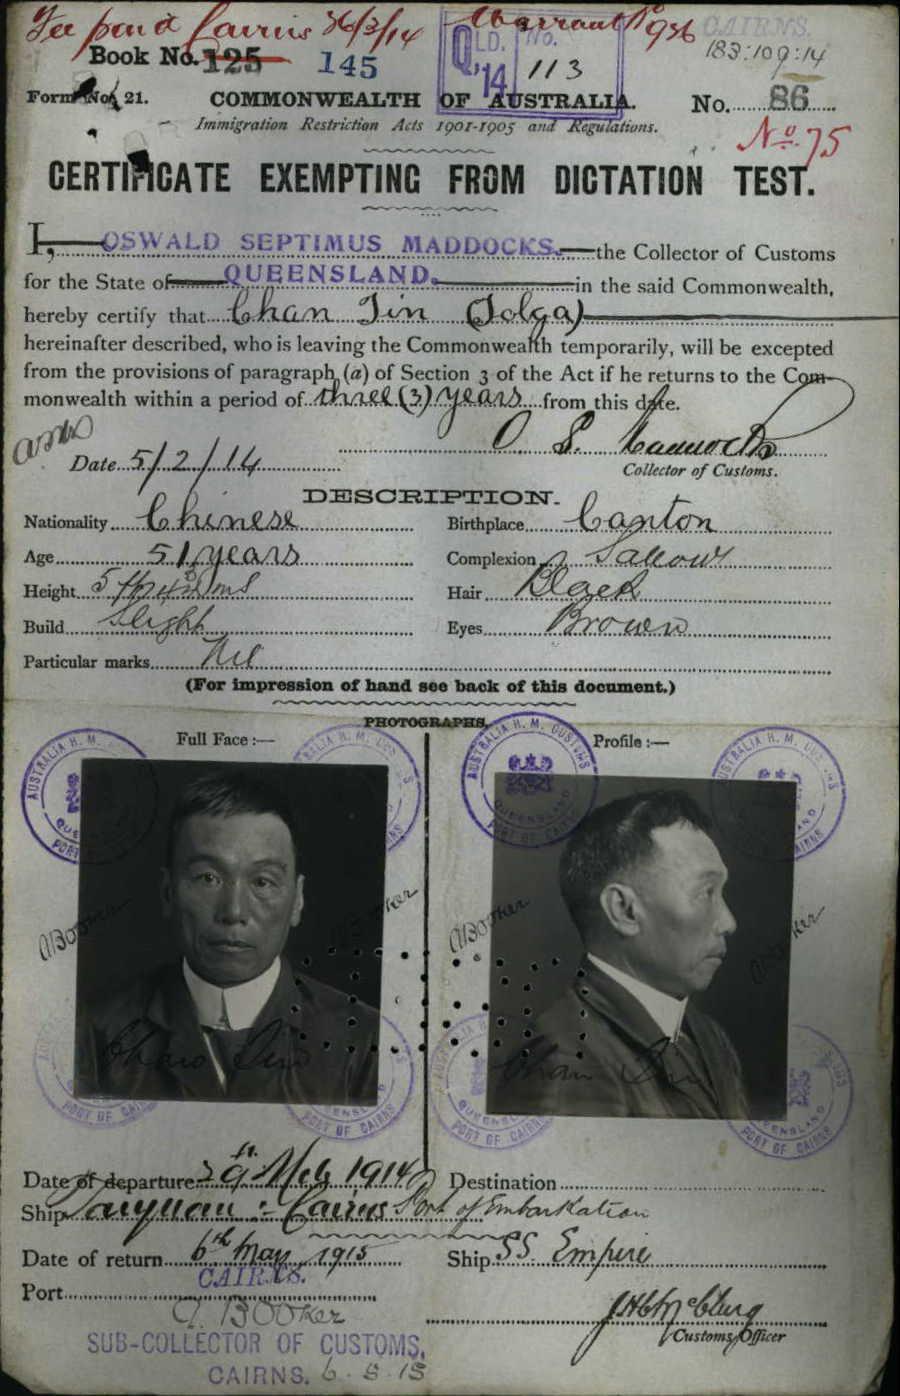 Fee paid Cairns 26/3/14 Warrant No 956 CAIRNS.
Book No. 125 145 QLD. No. 183:109:14
'14 113
Form No. 21. COMMONWEALTH OF AUSTRALIA. No. 86
Immigration Restriction Acts 1901-1905 and Regulations. No. 75
CERTIFICATE EXEMPTING FROM DICTATION TEST.
I, OSWALD SEPTIMUS MADDOCKS. the Collector of Customs
for the State of QUEENSLAND. in the said Commonwealth,
hereby certify that Chan Tin (Tolga)
hereinafter described, who is leaving the Commonwealth temporarily, will be excepted
from the provisions of paragraph (a) of Section 3 of the Act if he returns to the Com-
monwealth within a period of three (3) years from this date.
O. S. Maddocks
Date 5/2/14 Collector of Customs.
DESCRIPTION.
Nationality Chinese Birthplace Canton
Age 51 years Complexion Sallow
Height Hair Black
Build Slight Eyes Brown
Particular marks Nil
(For impression of hand see back of this document.)
PHOTOGRAPHS.
Full Face :— Profile :—
AUSTRALIA H. M. CUSTOMS QUEENSLAND PORT OF CAIRNS
A Booker A Booker A Booker A Booker
Chan Tin Chan Tin
Date of departure 29th Mch 1914 Destination
Ship Taiyuan :- Cairns Port of Embarkation
Date of return 6th May 1915 Ship SS. Empire
CAIRNS.
Port
A. Booker
SUB-COLLECTOR OF CUSTOMS, Customs Officer
CAIRNS. 6.5.15